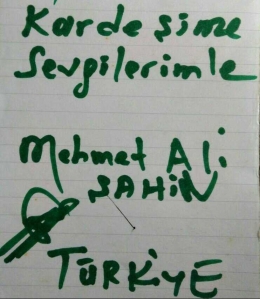 Kardeşime
Sevgilerimle
Mehmet Ali
ŞAHİN
TÜRKİYE